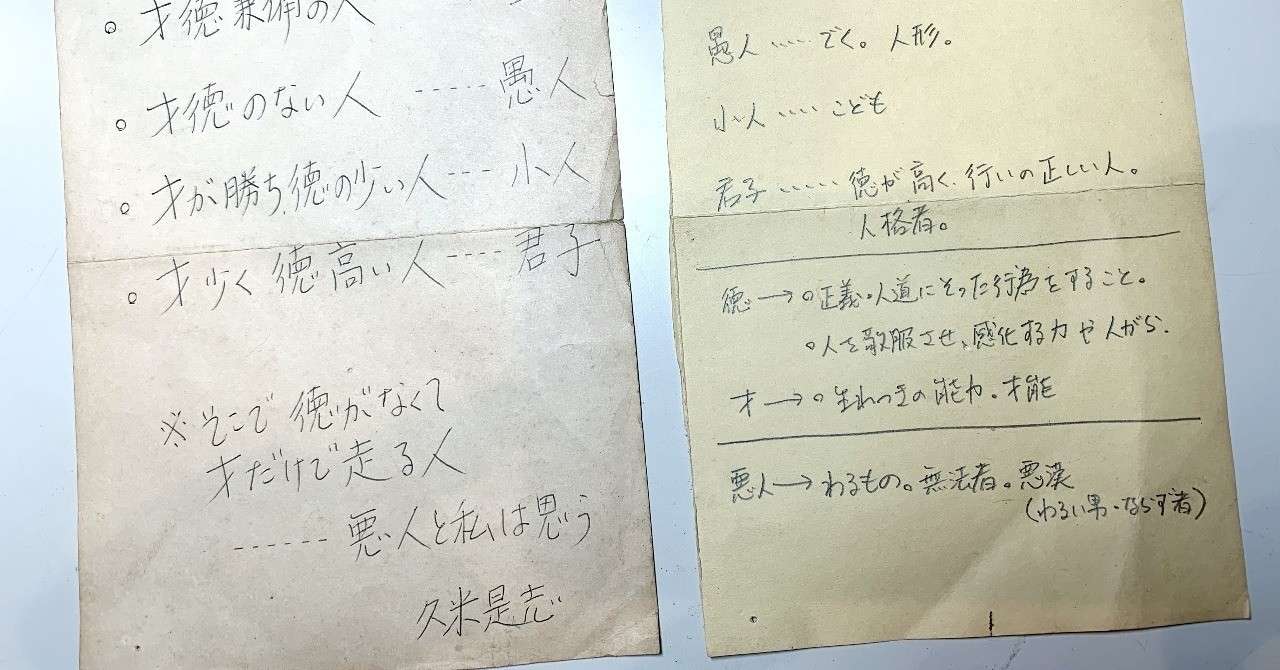 。才徳兼備の人
。才徳のない人 ----- 愚人
。才が勝ち、徳の少い人 --- 小人
。才少く徳高い人 ---- 君子
※そこで徳がなくて
才だけで走る人
------ 悪人と私は思う
久米是志
愚人……でく。人形。
小人……こども
君子……徳が高く、行いの正しい人。
人格者。
徳→。正義・人道にそった行為をすること。
。人を敬服させ、感化する力や人がら.
才→。生れつきの能力。才能
悪人→わるもの。無法者。悪漢
(わるい男・ならず者)